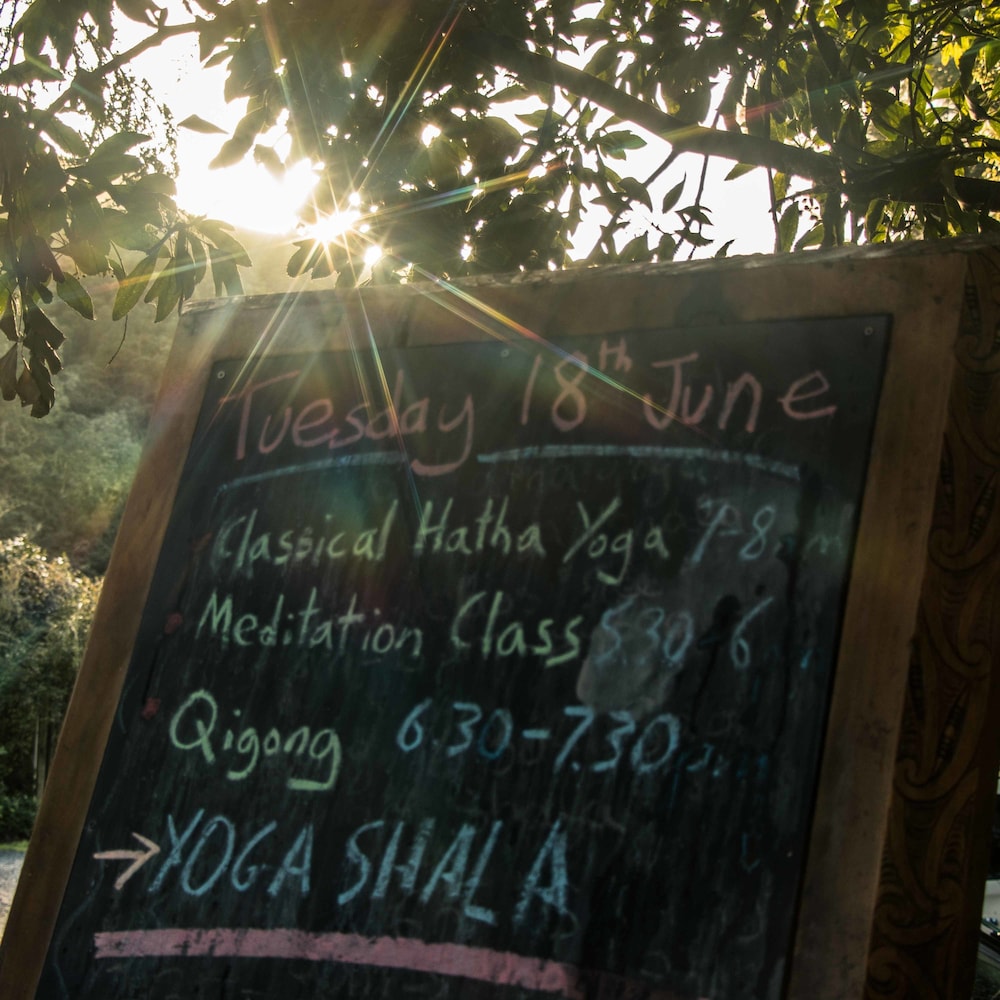 Tuesday 18th June
Classical Hatha Yoga 7-8am
Meditation Class 5.30-6
Qigong 6.30-7.30pm
→ YOGA SHALA